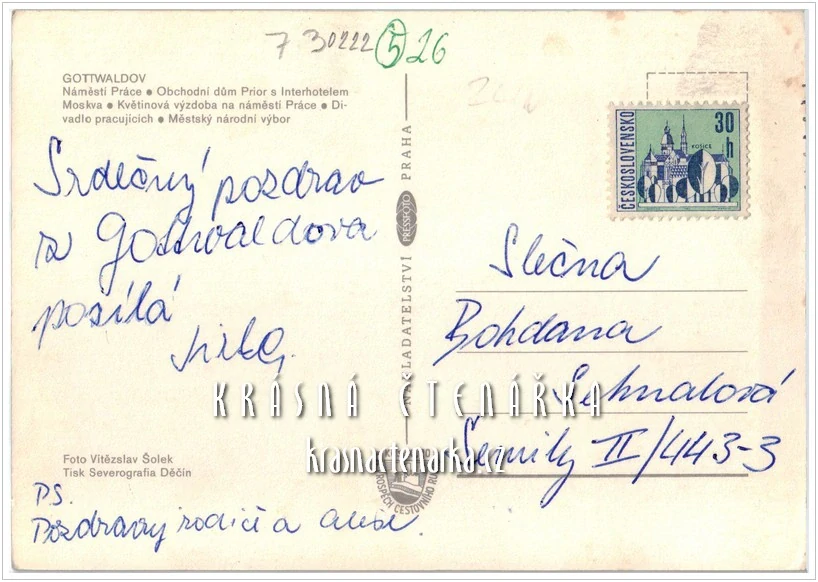 7 30222 5 26
GOTTWALDOV
Náměstí Práce ● Obchodní dům Prior s Interhotelem
Moskva ● Květinová výzdoba na náměstí Práce ● Di-
vadlo pracujících ● Městský národní výbor
Srdečný pozdrav
z Gottwaldova
posílá
Jirka.
Foto Vítězslav Šolek
Tisk Severografia Děčín
PS.
Pozdravuj rodiče a
NAKLADATELSTVÍ PRESSFOTO PRAHA
ČESKOSLOVENSKO
30 h
KOŠICE
Slečna
Bohdana
Sehnalová
Semily II/443-3
KRÁSNÁ ČTENÁŘKA
krasnactenarka.cz
CESTOVNÍHO